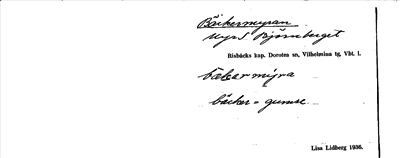 Bäckermyran
Myr S Björnberget
Risbäcks kap. Dorotea sn, Vilhelmina tg, Vbt. l.
bäcker = gumse
Lisa Lidberg 1936.